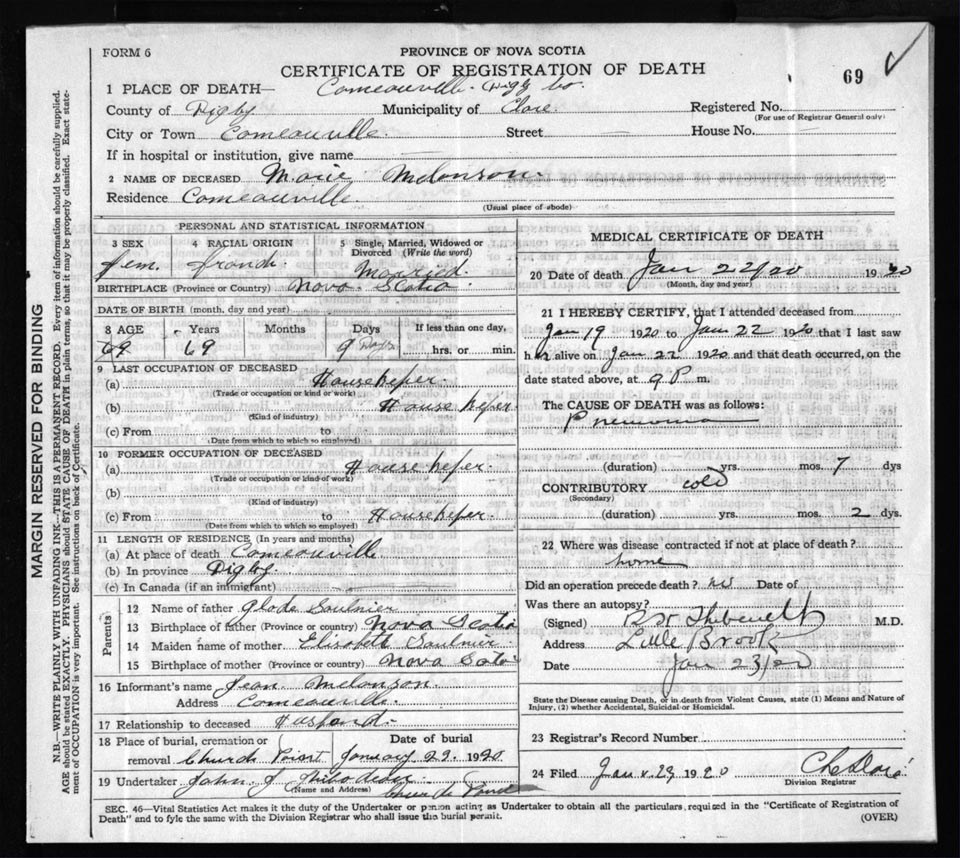 FORM 6
PROVINCE OF NOVA SCOTIA
CERTIFICATE OF REGISTRATION OF DEATH
69
1 PLACE OF DEATH— Comeauville. Digby Co.
County of Digby Municipality of Clare Registered No.
(For use of Registrar General only)
City or Town Comeauville Street — House No. —
If in hospital or institution, give name
2 NAME OF DECEASED Marie Melonson
Residence Comeauville.
(Usual place of abode)
PERSONAL AND STATISTICAL INFORMATION
3 SEX 4 RACIAL ORIGIN 5 Single, Married, Widowed or
Divorced (Write the word)
fem. french. Married.
BIRTHPLACE (Province or Country) Nova Scotia
DATE OF BIRTH (month, day and year)
8 AGE Years Months Days If less than one day,
69 69 9 Days hrs. or min.
9 LAST OCCUPATION OF DECEASED
(a) Housekeper.
(Trade or occupation or kind of work)
(b) House keper
(Kind of industry)
(c) From to
(Date from which to which so employed)
10 FORMER OCCUPATION OF DECEASED
(a) House keper.
(Trade or occupation or kind of work)
(b)
(Kind of industry)
(c) From to Housekeper.
(Date from which to which so employed)
11 LENGTH OF RESIDENCE (In years and months)
(a) At place of death Comeauville
(b) In province Digby
(c) In Canada (if an immigrant)
Parents
12 Name of father Glode Soulnier
13 Birthplace of father (Province or country) Nova Scotia
14 Maiden name of mother Elisabeth Soulnier
15 Birthplace of mother (Province or country) Nova Scotia
16 Informant's name Jean Melonson.
Address Comeauville.
17 Relationship to deceased Husband.
18 Place of burial, cremation or Date of burial
removal Church Point January 29. 1920
19 Undertaker John J
(Name and Address)
MEDICAL CERTIFICATE OF DEATH
20 Date of death Jan 22/20 1920
(Month, day and year)
21 I HEREBY CERTIFY, that I attended deceased from
Jan 19 1920 to Jan 22 1920 that I last saw
her alive on Jan 22 1920 and that death occurred, on the
date stated above, at 9 P m.
The CAUSE OF DEATH was as follows:
Pneumonia
(duration) yrs. mos. 7 dys
CONTRIBUTORY cold
(Secondary)
(duration) yrs. mos. 2 dys.
22 Where was disease contracted if not at place of death?
home
Did an operation precede death? no Date of
Was there an autopsy?
(Signed) M.D.
Address Little Brook
Date Jan 23/20
State the Disease causing Death, or in death from Violent Causes, state (1) Means and Nature of
Injury, (2) whether Accidental, Suicidal or Homicidal.
23 Registrar's Record Number
24 Filed Jan. 29 1920
Division Registrar
SEC. 46—Vital Statistics Act makes it the duty of the Undertaker or person acting as Undertaker to obtain all the particulars required in the "Certificate of Registration of
Death" and to fyle the same with the Division Registrar who shall issue the burial permit. (OVER)
MARGIN RESERVED FOR BINDING
N.B.—WRITE PLAINLY WITH UNFADING INK—THIS IS A PERMANENT RECORD. Every item of information should be carefully supplied.
AGE should be stated EXACTLY. PHYSICIANS should STATE CAUSE OF DEATH in plain terms, so that it may be properly classified. Exact state-
ment of OCCUPATION is very important. See instructions on back of Certificate.